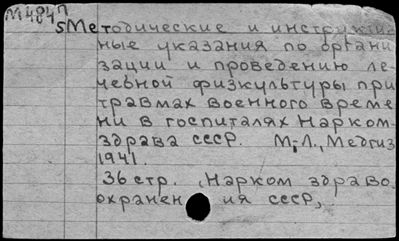 М484п
5 Методические и инструктив
ные указания по органи
зации и проведению ле
чебной физкультуры при
травмах военного време
ни в госпиталях Нарком-
здрава СССР. М.-Л., Медгиз
1941.
36 стр. , Нарком здраво
охранен ия СССР,